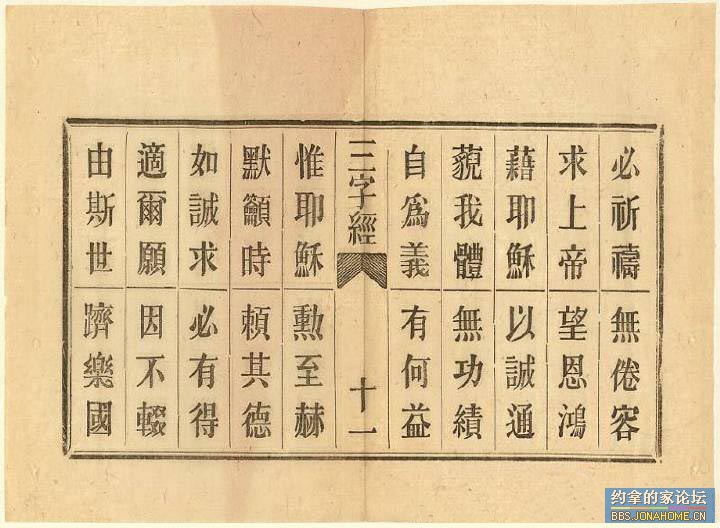 必祈禱 無倦容
求上帝 望恩鴻
藉耶穌 以誠通
藐我體 無功績
自爲義 有何益
三字經 十一
惟耶穌 勳至赫
默籲時 賴其德
如誠求 必有得
適爾願 因不輟
由斯世 躋樂國
约拿的家论坛
BBS.JONAHOME.CN